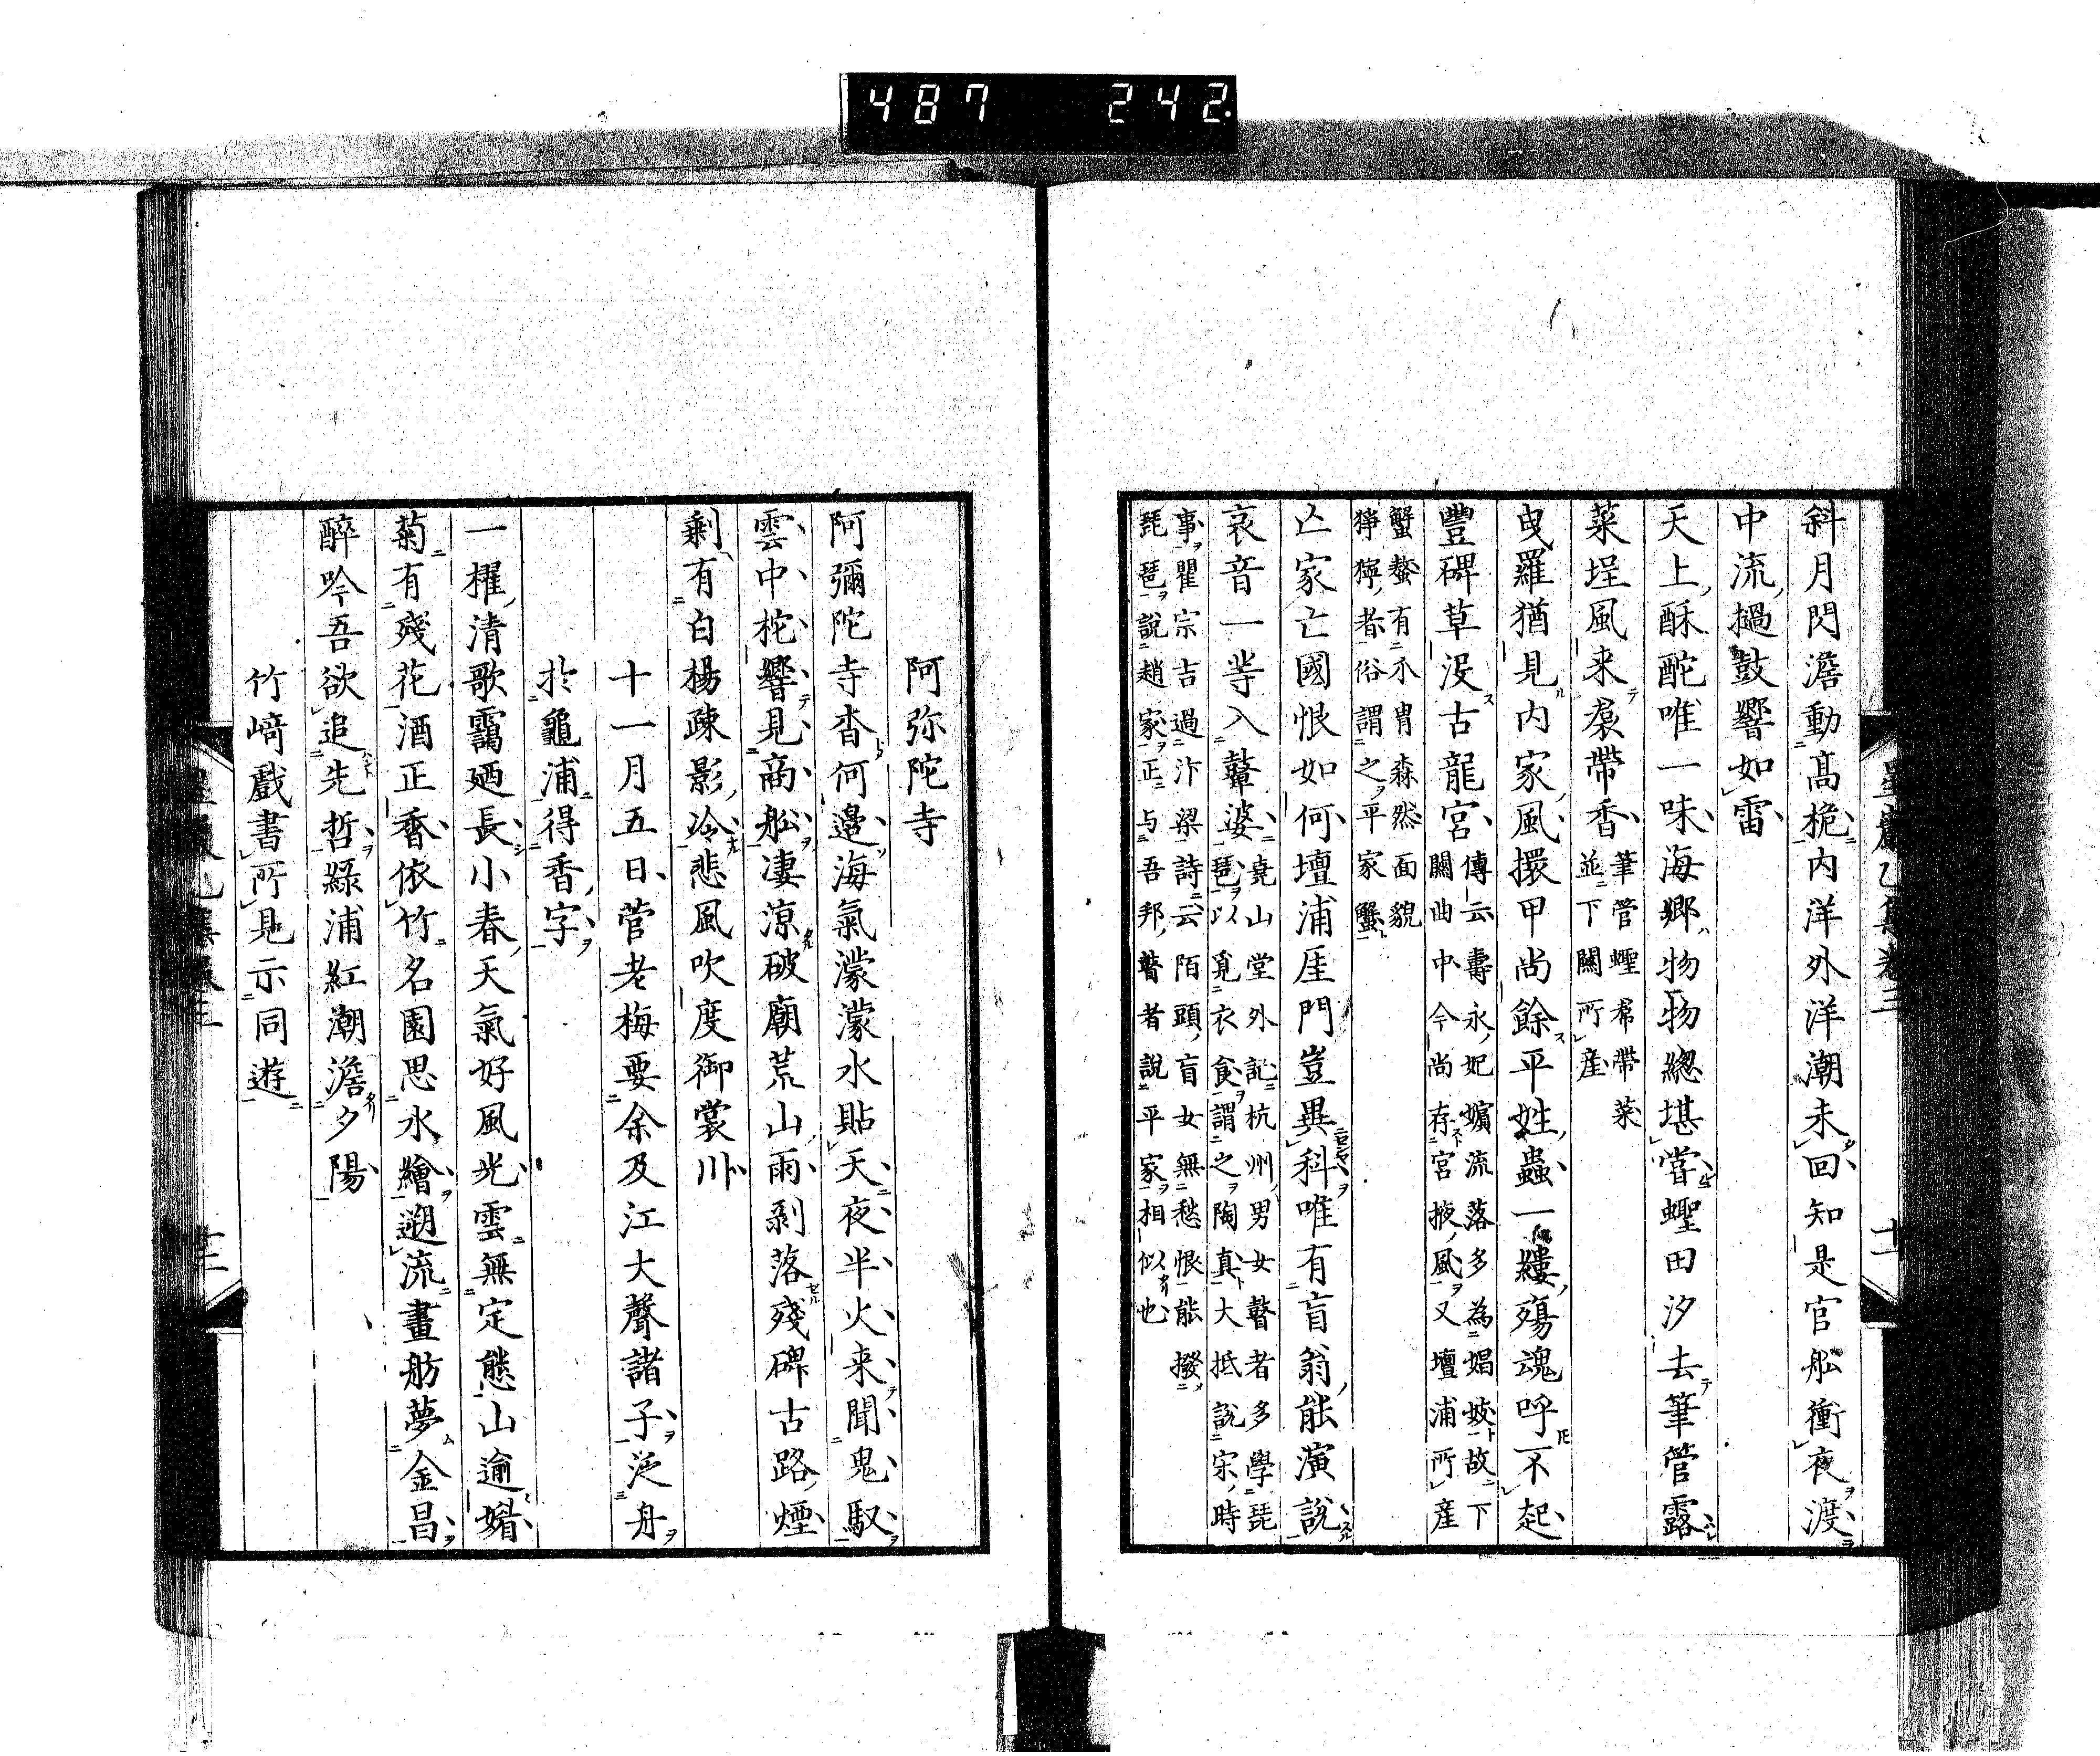 487 242
斜月閃澹動高桅内洋外洋潮未回知是官舩衝夜渡
中流撾鼓響如雷
天上酥酡唯一味海郷物物總堪嘗蟶田汐去筆管露
菜埕風来裠帶香
筆管蟶帬帶菜
並下關所産
曳羅猶見内家風擐甲尚餘平姓蟲一縷殤魂呼不起
豐碑草没古龍宮
傳云壽永妃嬪流落多為娼妓故下
關曲中今尚存宮掖風又壇浦所産
蟹螯有介冑森然面貌
猙獰者俗謂之平家蟹
亾家亡國恨如何壇浦厓門豈異科唯有盲翁能演説
哀音一䒭入鼙婆
堯山堂外記杭州男女瞽者多學琵
琶以覓衣食謂之陶真大抵説宋時
事瞿宗吉過汴梁詩云陌頭盲女無愁恨能撥
琵琶説趙家正与吾邦瞽者説平家相似也
阿弥陀寺
阿彌陀寺杳何邊海氣濛濛水貼天夜半火来聞鬼馭
雲中柁響見商舩凄涼破廟荒山雨剥落殘碑古路煙
剰有白楊疎影冷悲風吹度御裳川
十一月五日菅老梅要余及江大聲諸子泛舟
於龜浦得香字
一櫂清歌靄廼長小春天氣好風光雲無定態山逾媚
菊有殘花酒正香依竹名園思水繪遡流畫舫夢金昌
醉吟吾欲追先哲緑浦紅潮澹夕陽
竹﨑戲書所見示同遊